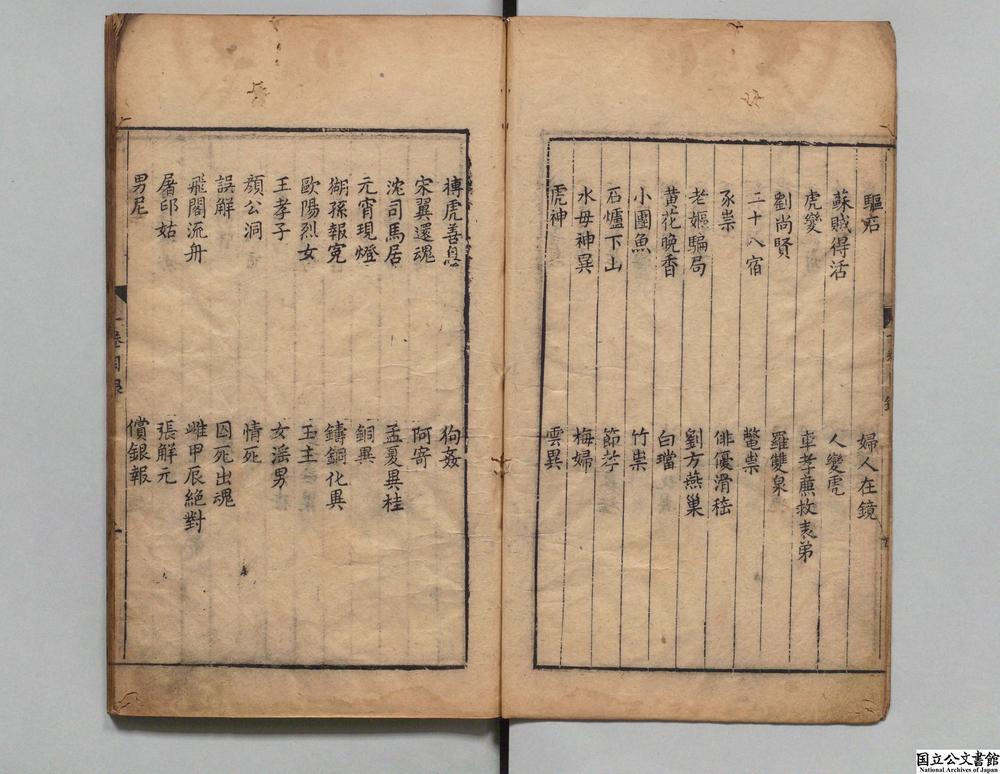 驅疟 婦人在鏡
蘇賊得活 人變虎
虎變 車孝廉救表弟
劉尚賢 羅雙泉
二十八宿 鱉祟
豕祟 俳優滑稽
老嫗騙局 劉方燕巢
黃花晚香 白璫
小團魚 竹祟
石爐下山 節孝
水母神異 梅婦
虎神 雲異
搏虎善息 狗姦
宋翼還魂 阿寄
沈司馬居 孟夏異桂
元宵現燈 銅異
猢孫報寃 鑄鋼化異
歐陽烈女 玉主
王孝子 女滛男
頹公洞 情死
誤解 囚死出魂
飛閣流舟 雌甲辰絕對
屠印姑 張解元
男尼 償銀報
一卷目录
一
国立公文書館
National Archives of Japan